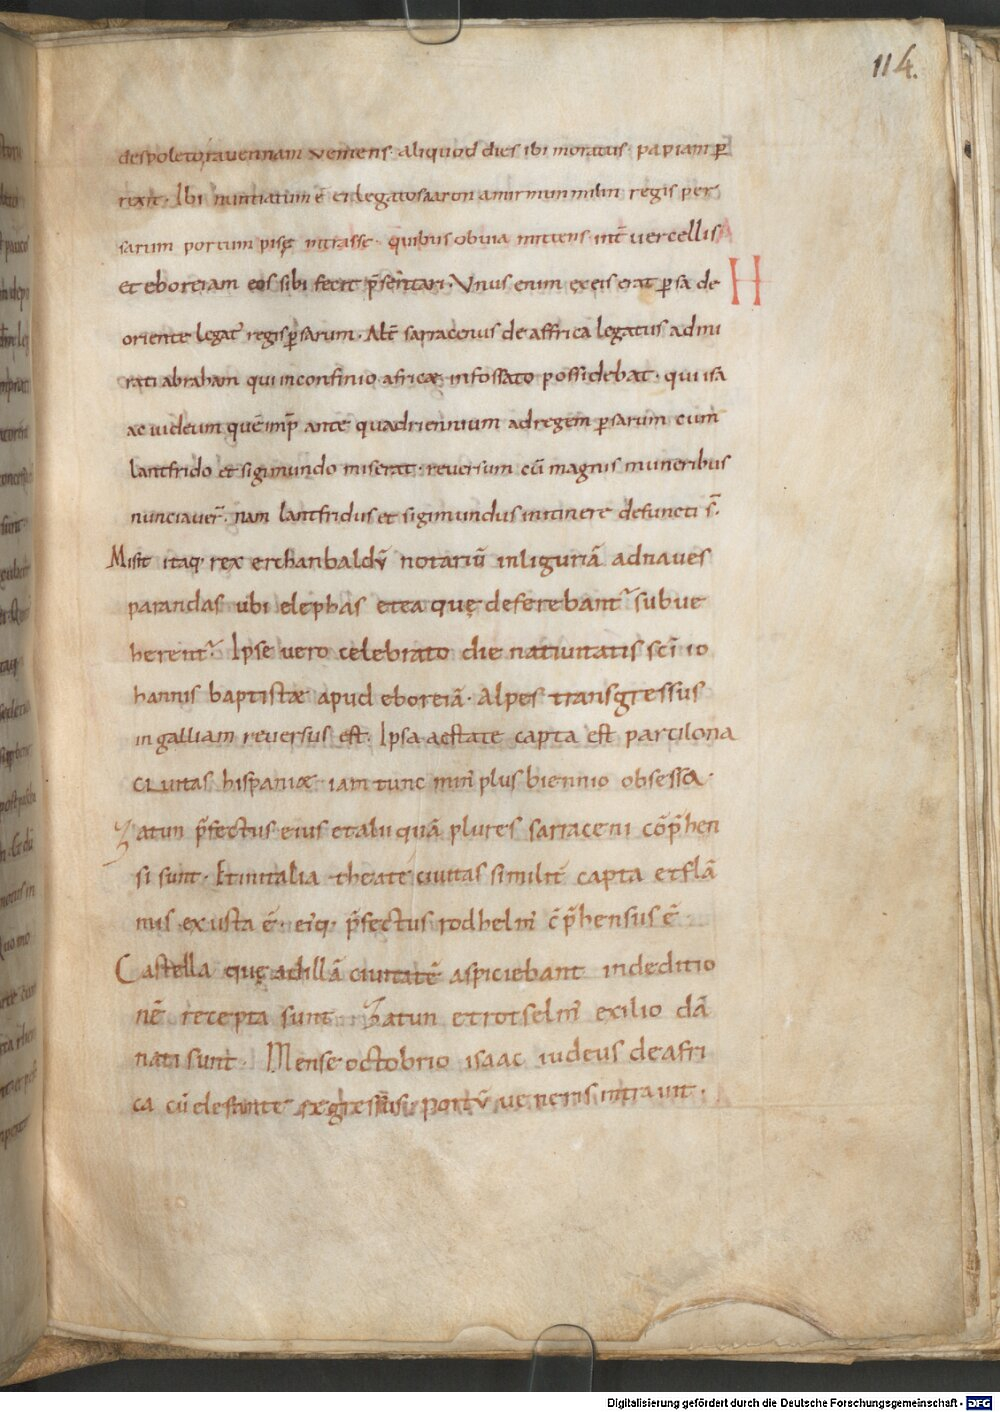 114.
despoleto rauennam veniens. aliquod dies ibi moratus. papiam p̄
rexit. Ibi nuntiatum ē ei legatos aaron amirmummilin regis per
sarum portum pisę intrasse. quibus obuia mittens int̄ uercellis
et eboreiam eos sibi fecit p̄sentari. Vnus enim ex eis erat persa de
oriente legat᾽ regis persarum. Alt̄ sarracenus de affrica legatus admi
rati abraham qui in confinio africæ in fossato possidebat. qui isa
ac iudeum quē imp̄ ante quadriennium ad regem persarum cum
lantfrido et sigimundo miserat. reuersum cū magnis muneribus
nunciauer̄. nam lantfridus et sigimundus in itinere defuncti s̄.
Misit itaq; rex erchanbaldū notariū in liguriā ad naues
parandas ubi elephas et ea quę deferebant᾽ subue
herent᾽. Ipse uero celebrato die natiuitatis sc̄i io
hannis baptistæ apud eboreiā. Alpes transgressus
in galliam reuersus est. Ipsa aestate capta est parcilona
ciuitas hispaniæ. iam tunc min̄ plus biennio obsessa.
Zatun p̄fectus eius et alii quā plures sarraceni cōp̄hen
si sunt. Et in italia theate ciuitas similit̄ capta et flā
mis exusta ē. eiq; p̄fectus rodhelm̄ c̄p̄hensus ē
Castella quę ad illā ciuitatē aspiciebant in deditio
nē recepta sunt. Zatun et rotselm̄ exilio dā
nati sunt. Mense octobrio isaac iudeus de afri
ca cū elefante regressus portū ueneris intrauit.
H
Digitalisierung gefördert durch die Deutsche Forschungsgemeinschaft - DFG